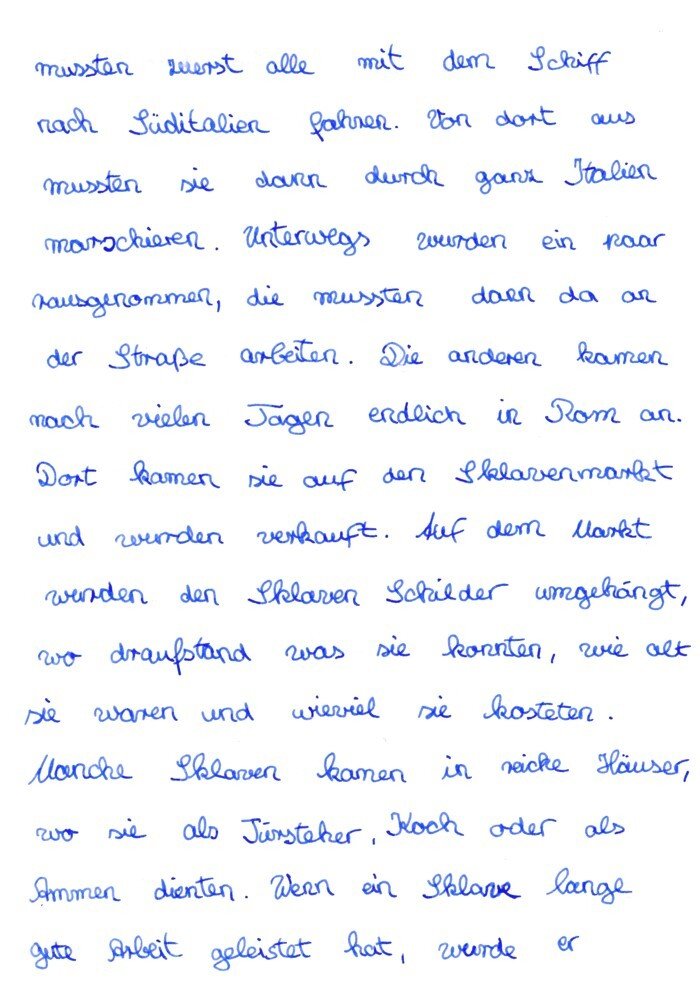 mussten zuerst alle mit dem Schiff
nach Süditalien fahren. Von dort aus
mussten sie dann durch ganz Italien
marschieren. Unterwegs wurden ein paar
rausgenommen, die mussten dann da an
der Straße arbeiten. Die anderen kamen
nach vielen Tagen endlich in Rom an.
Dort kamen sie auf den Sklavenmarkt
und wurden verkauft. Auf dem Markt
wurden den Sklaven Schilder umgehängt,
wo draufstand was sie konnten, wie alt
sie waren und wieviel sie kosteten.
Manche Sklaven kamen in reiche Häuser,
wo sie als Türsteher, Koch oder als
Ammen dienten. Wenn ein Sklave lange
gute Arbeit geleistet hat, wurde er